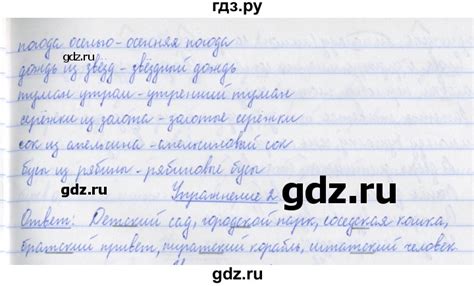 гдз.ру
погода осенью - осенняя погода
дождь из звёзд - звёздный дождь
туман утром - утренний туман
серёжки из золота - золотые серёжки
сок из апельсина - апельсиновый сок
бусы из рябины - рябиновые бусы
Упражнение 2
Ответ: Детский сад, городской парк, соседская кошка,
братский привет, пиратский корабль, штатский человек
gdz.ru
gdz.ru
gdz.ru
gdz.ru